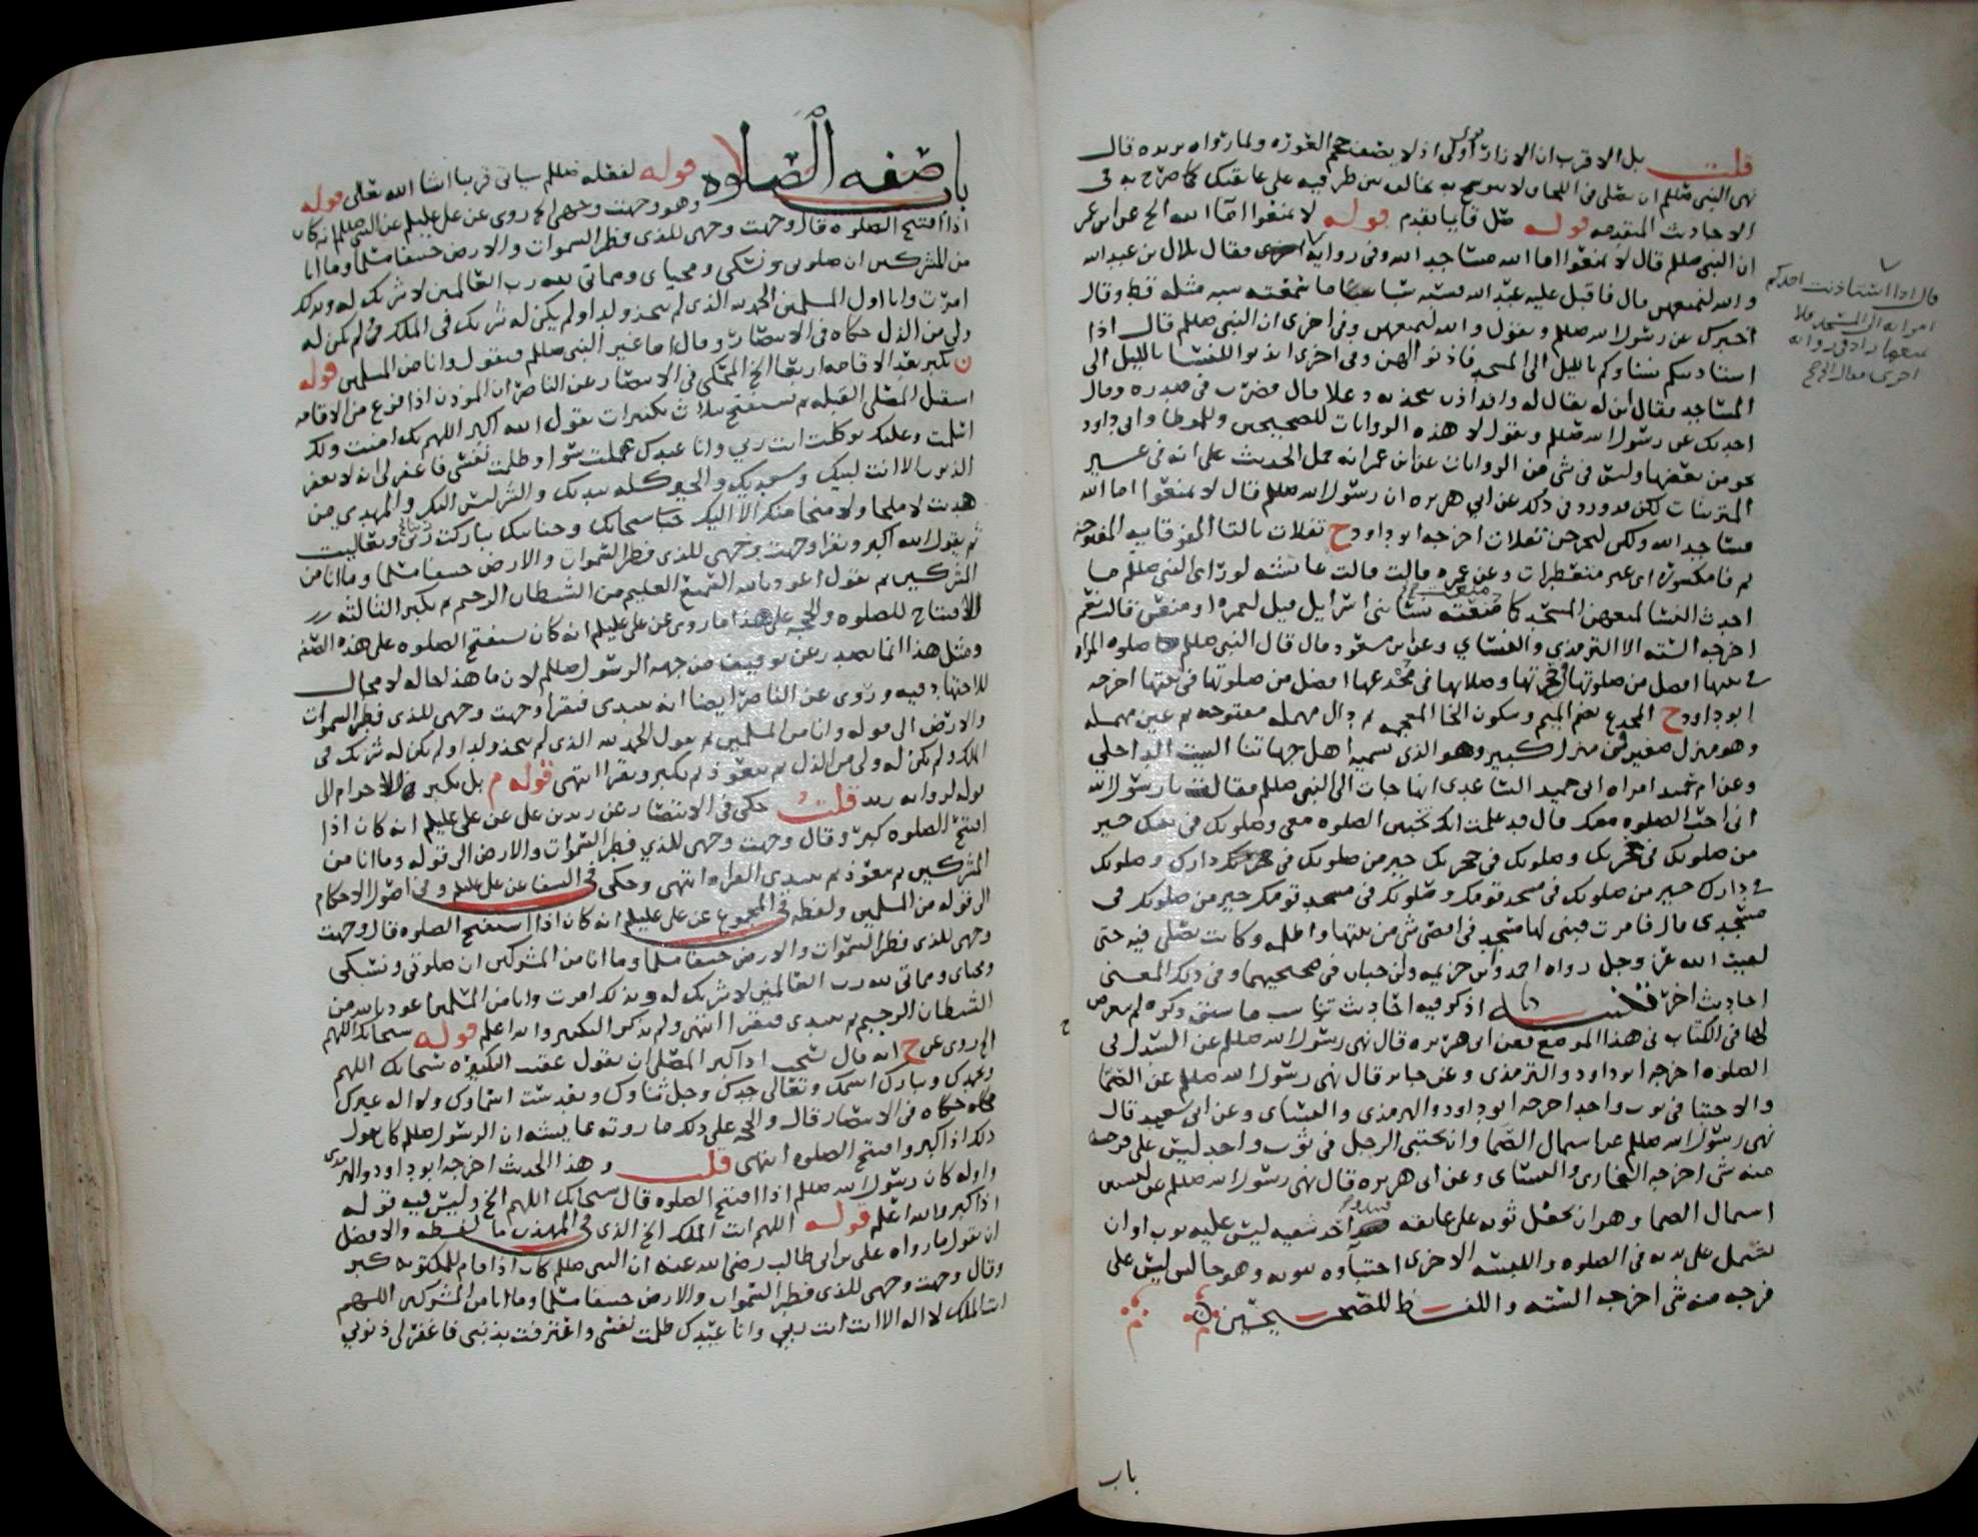 قلت بل الاقرب ان الازار اولى اذ لا يصف حجم العورة ولما رواه بريده قال
نهى النبي صللم ان يصلى فى اللحاف لا يتوشح به يخالف بين طرفيه على عاتقك كما صرح به فى
الاحاديث المتقدمه قوله صل قايبا تقدم قوله لا تمنعوا امآ الله الخ عن ابن عمر
ان النبى صللم قال لا تمنعوا اما الله مساجد الله وفى رواية اخرى فقال بلال بن عبدالله
والله لنمنعهن قال فاقبل عليه عبدالله فسبه سبا ما سمعته سبه مثله قط وقال
اخبرك عن رسول الله صللم وتقول والله لنمنعهن وفى اخرى ان النبى صللم قال اذا
استاذنكم نساوكم بالليل الى المسجد فاذنوا لهن وفى اخرى ائذنوا للنسا بالليل الى
المساجد فقال ابن له يقال له واقد اذن يتخذنه دغلا قال فضرب فى صدره وقال
احدثك عن رسول الله صللم وتقول لا هذه الروايات للصحيحين وللموطا وابى داود
نحو من بعضها وليس فى شى من الروايات عن ابن عمر انه حمل الحديث على انه فى غير
المتزينات لكن قد ورد فى ذلك عن ابي هريره ان رسول الله صللم قال لا تمنعوا اما الله
مساجد الله ولكن ليخرجن تفلات اخرجه ابو داود ح تفلات بالتا الفوقانيه المفتوحة
ثم فا مكسورة اى غير متعطرات وعن عمره قالت قالت عائشه لو راى النبى صللم ما
احدث النسا لمنعهن المسجد كما منعته نسا بنى اسرايل قيل لعمره او منعن قالت نعم
اخرجه الستة الا الترمذي والنساي وعن ابن مسعود قال قال النبى صللم صلوه المراه
فى بيتها افضل من صلوتها فى حجرتها وصلاتها فى مخدعها افضل من صلوتها فى بيتها اخرجه
ابو داود ح المخدع بضم الميم وسكون الخا المعجمه ثم دال مهمله مفتوحه ثم عين مهمله
وهو منزل صغير فى منزل كبير وهو الذى تسميه اهل جهاتنا البيت الداخلي
وعن ام حميد امراه ابى حميد الساعدى انها جات الى النبى صللم فقالت يا رسول الله
انى احب الصلوه معك قال قد علمت انك تحبين الصلوه معى وصلوتك فى بيتك خير
من صلوتك فى حجرتك وصلوتك فى حجرتك خير من صلوتك فى دارك وصلوتك
فى دارك خير من صلوتك فى مسجد قومك وصلوتك فى مسجد قومك خير من صلوتك فى
مسجدى قال فامرت فبنى لها مسجد فى اقصى شى من بيتها واظلمه وكانت تصلى فيه حتى
لقيت الله عز وجل رواه احمد وابن خزيمه وابن حبان فى صحيحيهما وفى ذلك المعنى
احاديث اخر تنبيه اذكر فيه احاديث تناسب ما سبق ذكره لم يعرض
لها فى الكتاب فى هذا الموضع فعن ابى هريره قال نهى رسول الله صللم عن السدل فى
الصلوه اخرجه ابو داود والترمذى وعن جابر قال نهى رسول الله صللم عن الصما
والاحتبا فى ثوب واحد اخرجه ابو داود والترمذى والنساى وعن ابى سعيد قال
نهى رسول الله صللم عن اشتمال الصما وان يحتبى الرجل فى ثوب واحد ليس على فرجه
منه شى اخرجه البخارى والنساى وعن ابى هريره قال نهى رسول الله صللم عن لبستين
اشتمال الصما وهو ان يجعل ثوبه على عاتقه فيبدو احد شقيه ليس عليه ثوب او ان
يشتمل على يديه فى الصلوه واللبسه الاخرى احتباوه بثوبه وهو جالس ليس على
فرجه منه شى اخرجه الستة واللفظ للصحيحين
قال اذا استاذنت احدكم
امراته الى المسجد فلا
يمنعها زاد فى رواية
اخرى فقال الخ
باب
باب صفه الصلوه قوله لفعله صللم سياتى قريبا انشا الله تعالى قوله
وهو وجهت وجهى الخ روى عن على عليلم عن النبى صللم انه كان
اذا افتتح الصلوه قال وجهت وجهى للذى فطر السموات والارض حنيفا مسلما وما انا
من المشركين ان صلوتى ونسكى ومحياى ومماتى لله رب العالمين لا شريك له وبذلك
امرت وانا اول المسلمين الحمد لله الذى لم يتخذ ولدا ولم يكن له شريك فى الملك ولم يكن له
ولي من الذل حكاه فى الانتصار وقال اما غير النبى صللم فيقول وانا من المسلمين قوله
ن يكبر بعد الاقامه اربعا الخ المحكى فى الانتصار عن الناصر ان الموذن اذا فرغ من الاقامه
استقبل المصلى القبله ثم يستفتح بثلاث تكبيرات يقول الله اكبر اللهم بك امنت ولك
اسلمت وعليك توكلت انت ربي وانا عبدك عملت سوا وظلمت نفسى فاغفر لى انه لا يغفر
الذنوب الا انت لبيك وسعديك والخير كله بيديك والشر ليس اليك والمهدى من
هديت لا ملجا ولا منجا منك الا اليك سبحانك وحنانيك تباركت ربنا وتعاليت
ثم يقول الله اكبر ويقرا وجهت وجهى للذى فطر السموات والارض حنيفا مسلما وما انا من
المشركين ثم يقول اعوذ بالله السميع العليم من الشيطان الرجيم ثم يكبر الثالثه
الافتتاح للصلوه والحجه على هذا ما روى عن على عليلم انه كان يستفتح الصلوه على هذه الصفه
ومثل هذا انما يصدر عن توقيف من جهه الرسول صللم لان ما هذا حاله لا مجال
للاجتهاد فيه وروى عن الناصر ايضا انه يبتدى فيقرا وجهت وجهى للذى فطر السموات
والارض الى قوله وانا من المسلمين ثم يقول الحمد لله الذى لم يتخذ ولدا ولم يكن له شريك فى
الملك ولم يكن له ولى من الذل ثم يتعوذ ثم يكبر ويقرا انتهى قوله م بل يكبر الاحرام الى
قوله لروايه زيد قلت حكى فى الانتصار عن زيد بن على عن على عليلم انه كان اذا
افتتح الصلوه كبر وقال وجهت وجهى للذي فطر السموات والارض الى قوله وما انا من
المشركين ثم يتعوذ ثم يبتدى القراه انتهى وحكى فى الشفا عن على عليلم وفى اصول الاحكام
الى قوله من المسلمين ولفظه فى المجموع عن على عليلم انه كان اذا استفتح الصلوه قال وجهت
وجهى للذى فطر السموات والارض حنيفا مسلما وما انا من المشركين ان صلوتى ونسكى
ومحياى ومماتى لله رب العالمين لا شريك له وبذلك امرت وانا من المسلمين اعوذ بالله من
الشيطان الرجيم ثم يبتدى فيقرا انتهى ولم يذكر التكبير والله اعلم قوله سبحانك اللهم
الخ روى عن ح انه قال يستحب اذا كبر المصلى ان يقول عقيب التكبيرة سبحانك اللهم
وبحمدك وتبارك اسمك وتعالى جدك وجل ثناوك وتقدست اسماوك ولا اله غيرك
حكاه فى الانتصار قال والحجه على ذلك ما روته عايشه ان الرسول صللم كان يقول
ذلك اذا كبر وافتتح الصلوه انتهى قلت وهذا الحديث اخرجه ابو داود والترمذى
واوله كان رسول الله صللم اذا افتتح الصلوه قال سبحانك اللهم الخ وليس فيه قوله
اذا كبر والله اعلم قوله اللهم انت الملك الخ الذى فى المهذب ما لفظه والافضل
ان يقول ما رواه على بن ابى طالب رضى الله عنه ان النبى صللم كان اذا قام للمكتوبه كبر
وقال وجهت وجهى للذى فطر السموات والارض حنيفا مسلما وما انا من المشركين اللهم
انت الملك لا اله الا انت انت ربي وانا عبدك ظلمت نفسى واعترفت بذنبى فاغفر لى ذنوبي